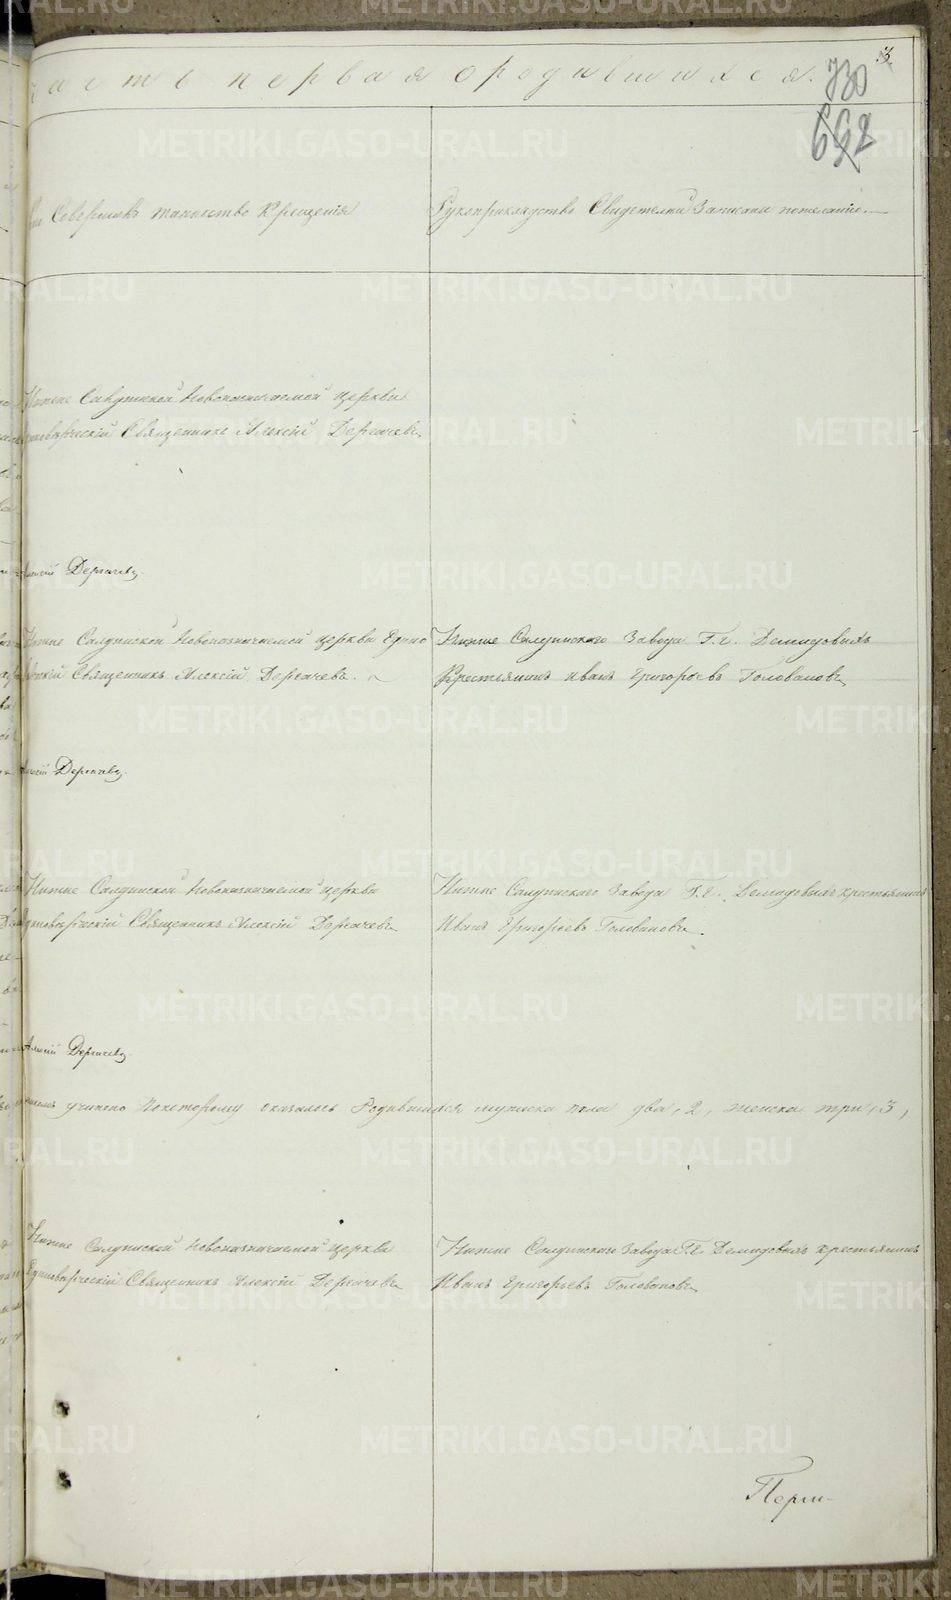 3
часть первая ородившихся.
730
692
Совершалъ таинство Крещенія
Рукоприкладство Свидетелей Записани пожеланію.
Нижне Салдинской Новоназначаемой церкви
Единоверческій Священникъ Алексій Дергачевъ
Алексій Дергачевъ
Нижне Салдинской Новоназначаемой церкви Едино
верческій Священникъ Алексій Дергачевъ.
Нижне Салдинскаго Завода Г.г. Демидовыхъ
Крестьянинъ Иванъ Григорьевъ Головановъ
Алексій Дергачевъ.
Нижне Салдинской Новоназначаемой церкви
Единоверческій Священникъ Алексій Дергачевъ
Нижне Салдинскаго Завода Г.г. Демидовыхъ крестьянинъ
Иванъ Григорьевъ Головановъ.
Алексій Дергачевъ
учинено Покоторому оказалось Родившихся мужеска пола два, 2, женска три, 3,
Нижне Салдинской Новоназначаемой церкви
Единоверческій Священникъ Алексій Дергачевъ
Нижне Салдинскаго Завода Г.г. Демидовыхъ крестьянинъ
Иванъ Григорьевъ Головановъ
METRIKI.GASO-URAL.RU